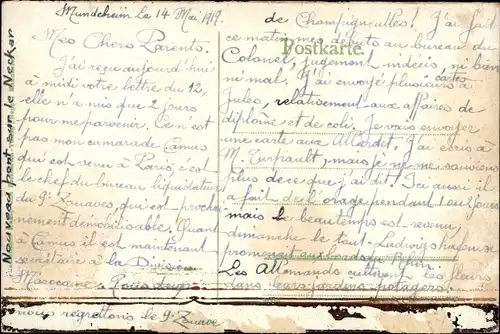 Mundenheim le 14 Mai 1919.
Mes Chers Parents.
J'ai reçu aujourd'hui
à midi votre lettre du 12,
elle n'a mis que 2 jours
pour me parvenir. Ce n'est
pas mon camarade Camus
qui est venu à Paris, c'est
le chef du bureau liquidateur
du 9e Zouaves, qui est proche
nement démobilisable. Quant
à Camus il est maintenant
secrétaire à la Division
Marocaine.
nous regrettons le 9e Zouave
de Champigneulles! J'ai fait
ce matin mes débuts au bureau du
Postkarte.
Colonel, jugement indécis, ni bien
ni mal. J'ai envoyé plusieurs cartes à
Jules, relativement aux affaires de
diplôme et de coli. Je vais envoyer
une carte aux Allardet. J'ai écris à
M. Turpault, mais je ne me souviens
plus de ce que j'ai dit! Ici aussi il
a fait de l'orage pendant 1 ou 2 jours
mais le beau temps est revenu,
dimanche le tout-Ludwigshafen se
promenait aux bords du Rhin.
Les Allemands cultivent les fleurs
dans leurs jardins potagers!
Nouveau pont sur le Neckar